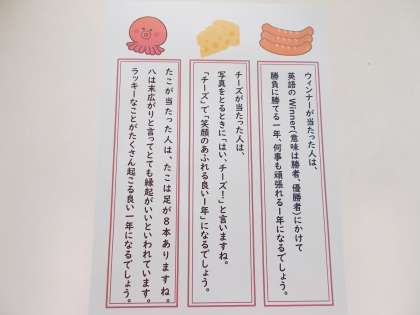 ウィンナーが当たった人は、
英語の Winner(意味は勝者、優勝者)にかけて
勝負に勝てる一年、何事も頑張れる1年になるでしょう。
チーズが当たった人は、
写真をとるときに「はい、チーズ!」と言いますね。
「チーズ」で「笑顔のあふれる良い1年」になるでしょう。
たこが当たった人は、たこは足が8本ありますね。
八は末広がりと言ってとても縁起がいいといわれています。
ラッキーなことがたくさん起こる良い一年になるでしょう。